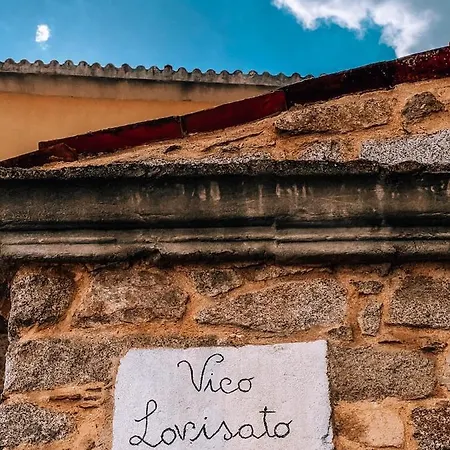 Vico
Lovisato